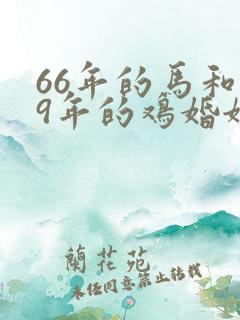 66年的馬和
9年的鷄婚姻
蘭花苑
未经同意禁止转载